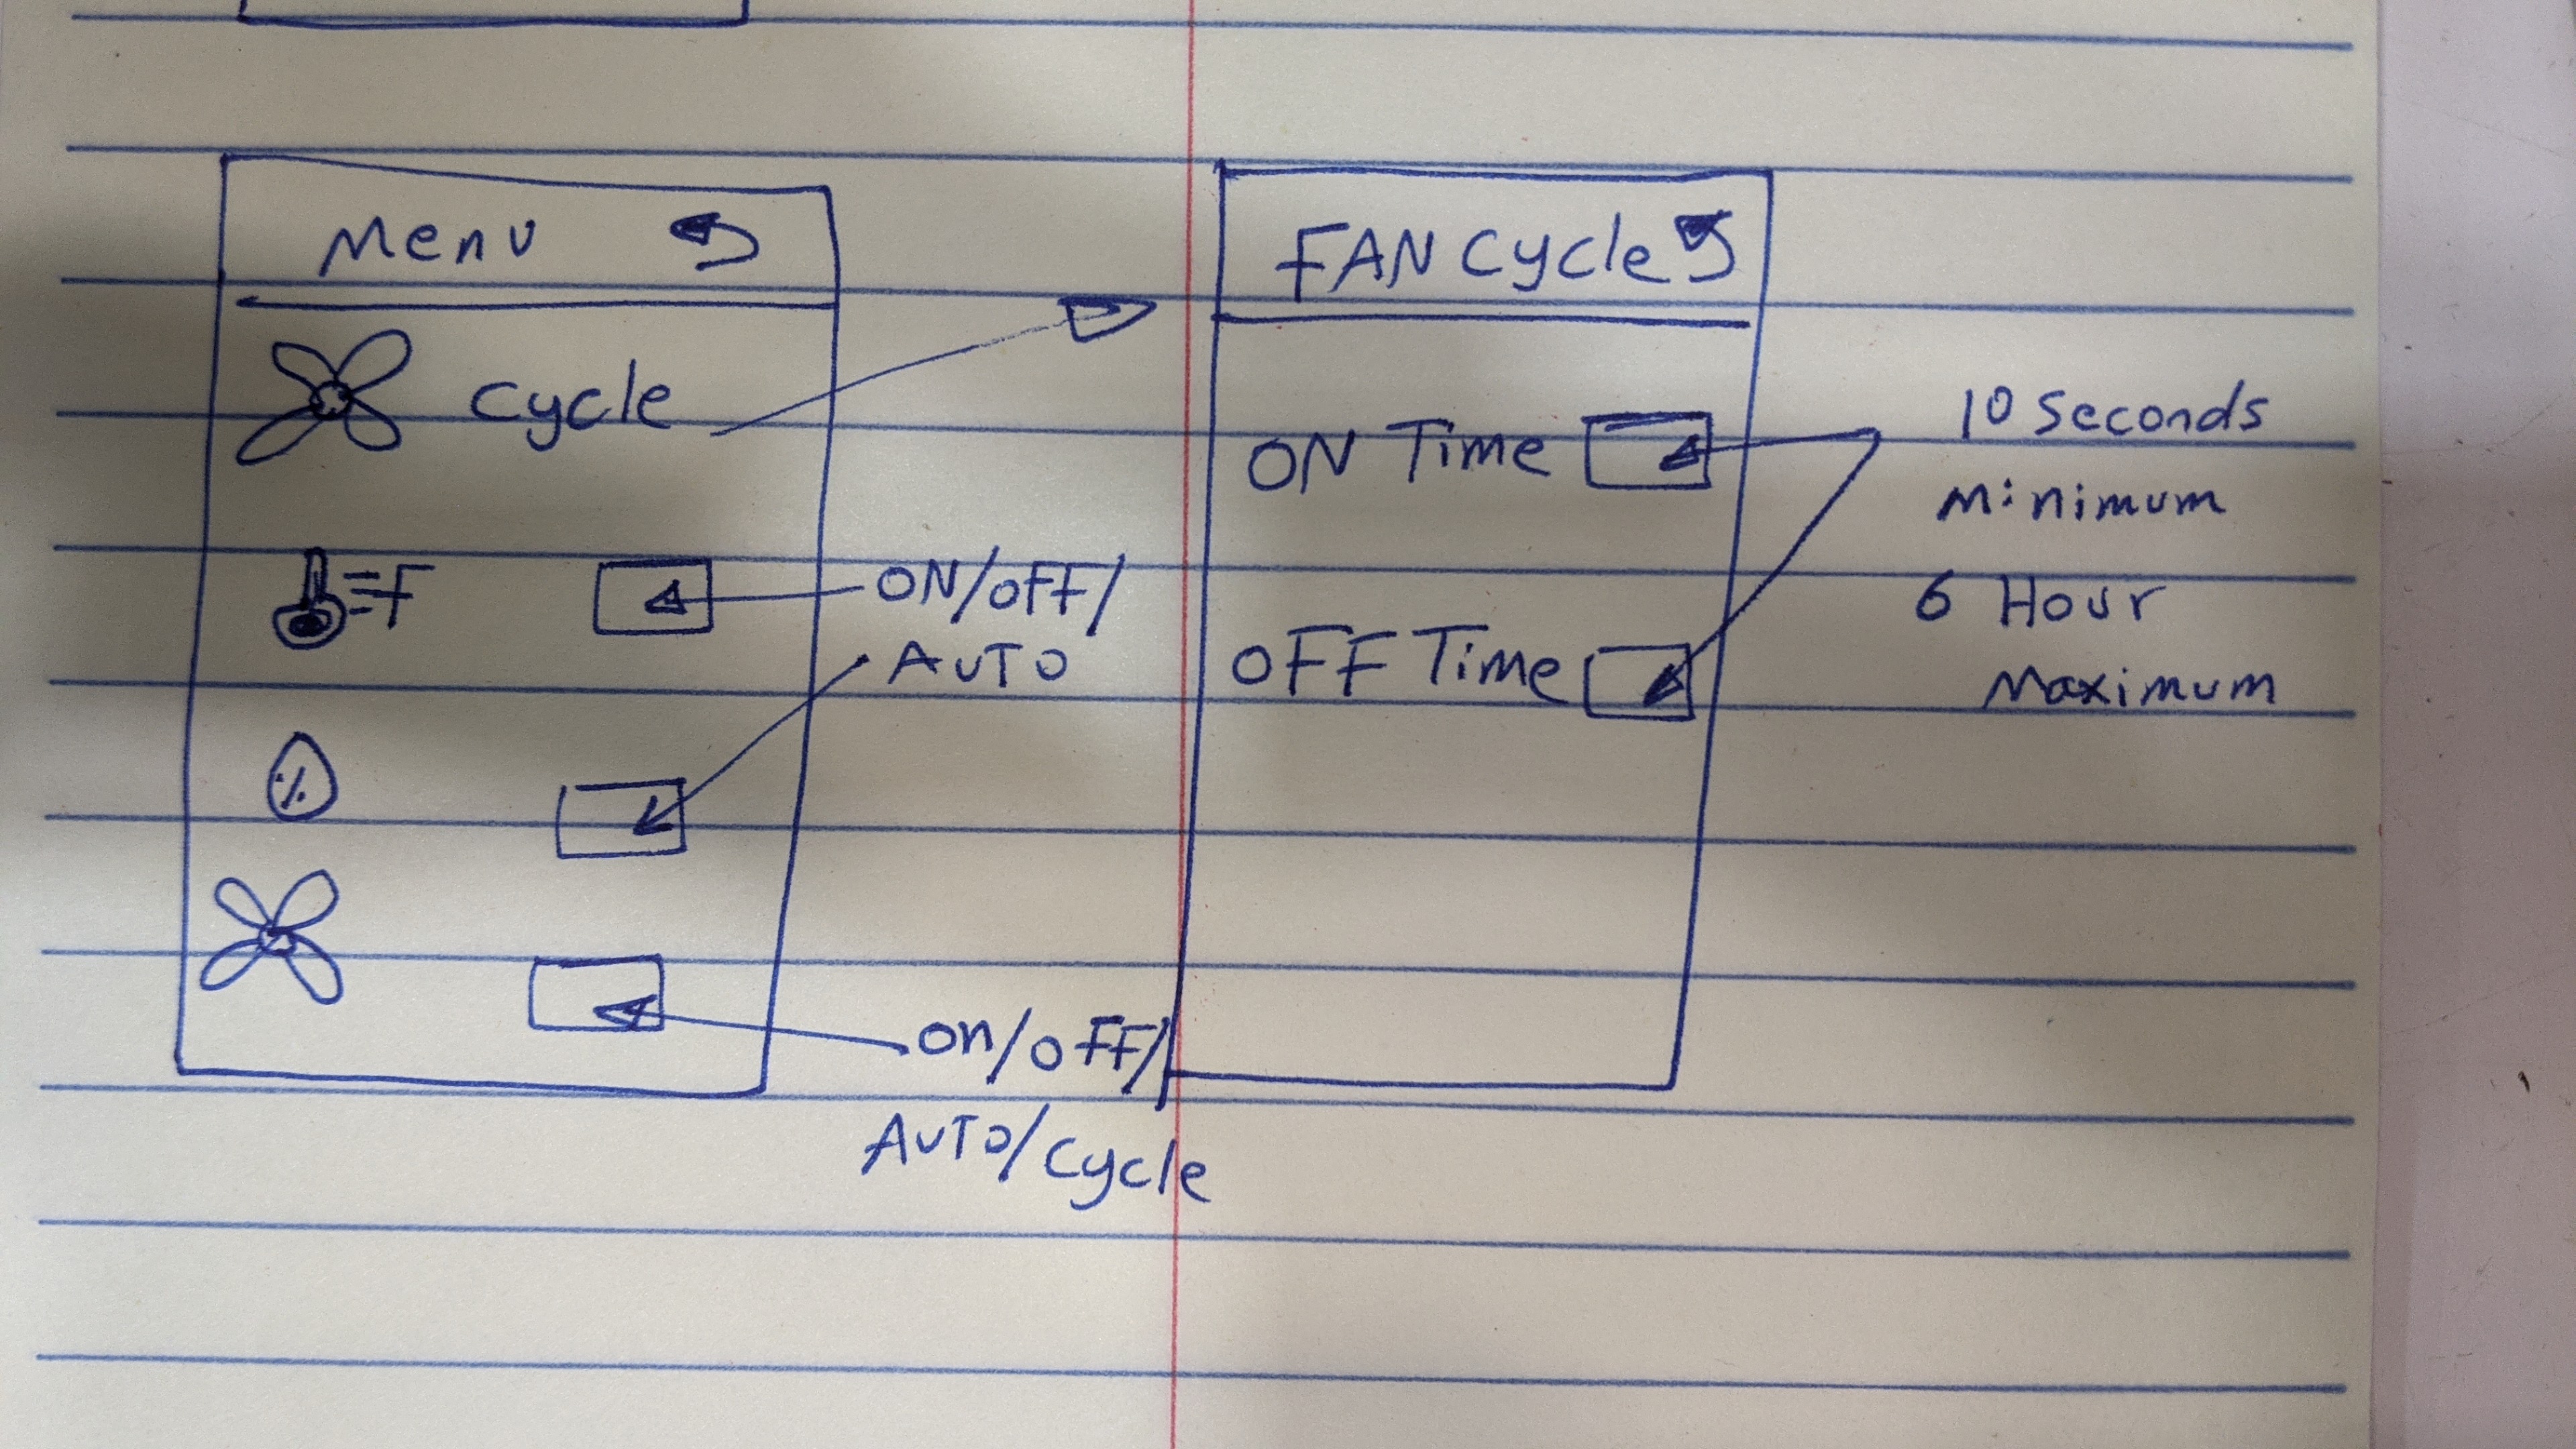 Menu
cycle
F
ON/OFF/
AUTO
%
ON/OFF/
AUTO/cycle
FAN Cycle
ON Time
OFF Time
10 Seconds
Minimum
6 Hour
Maximum